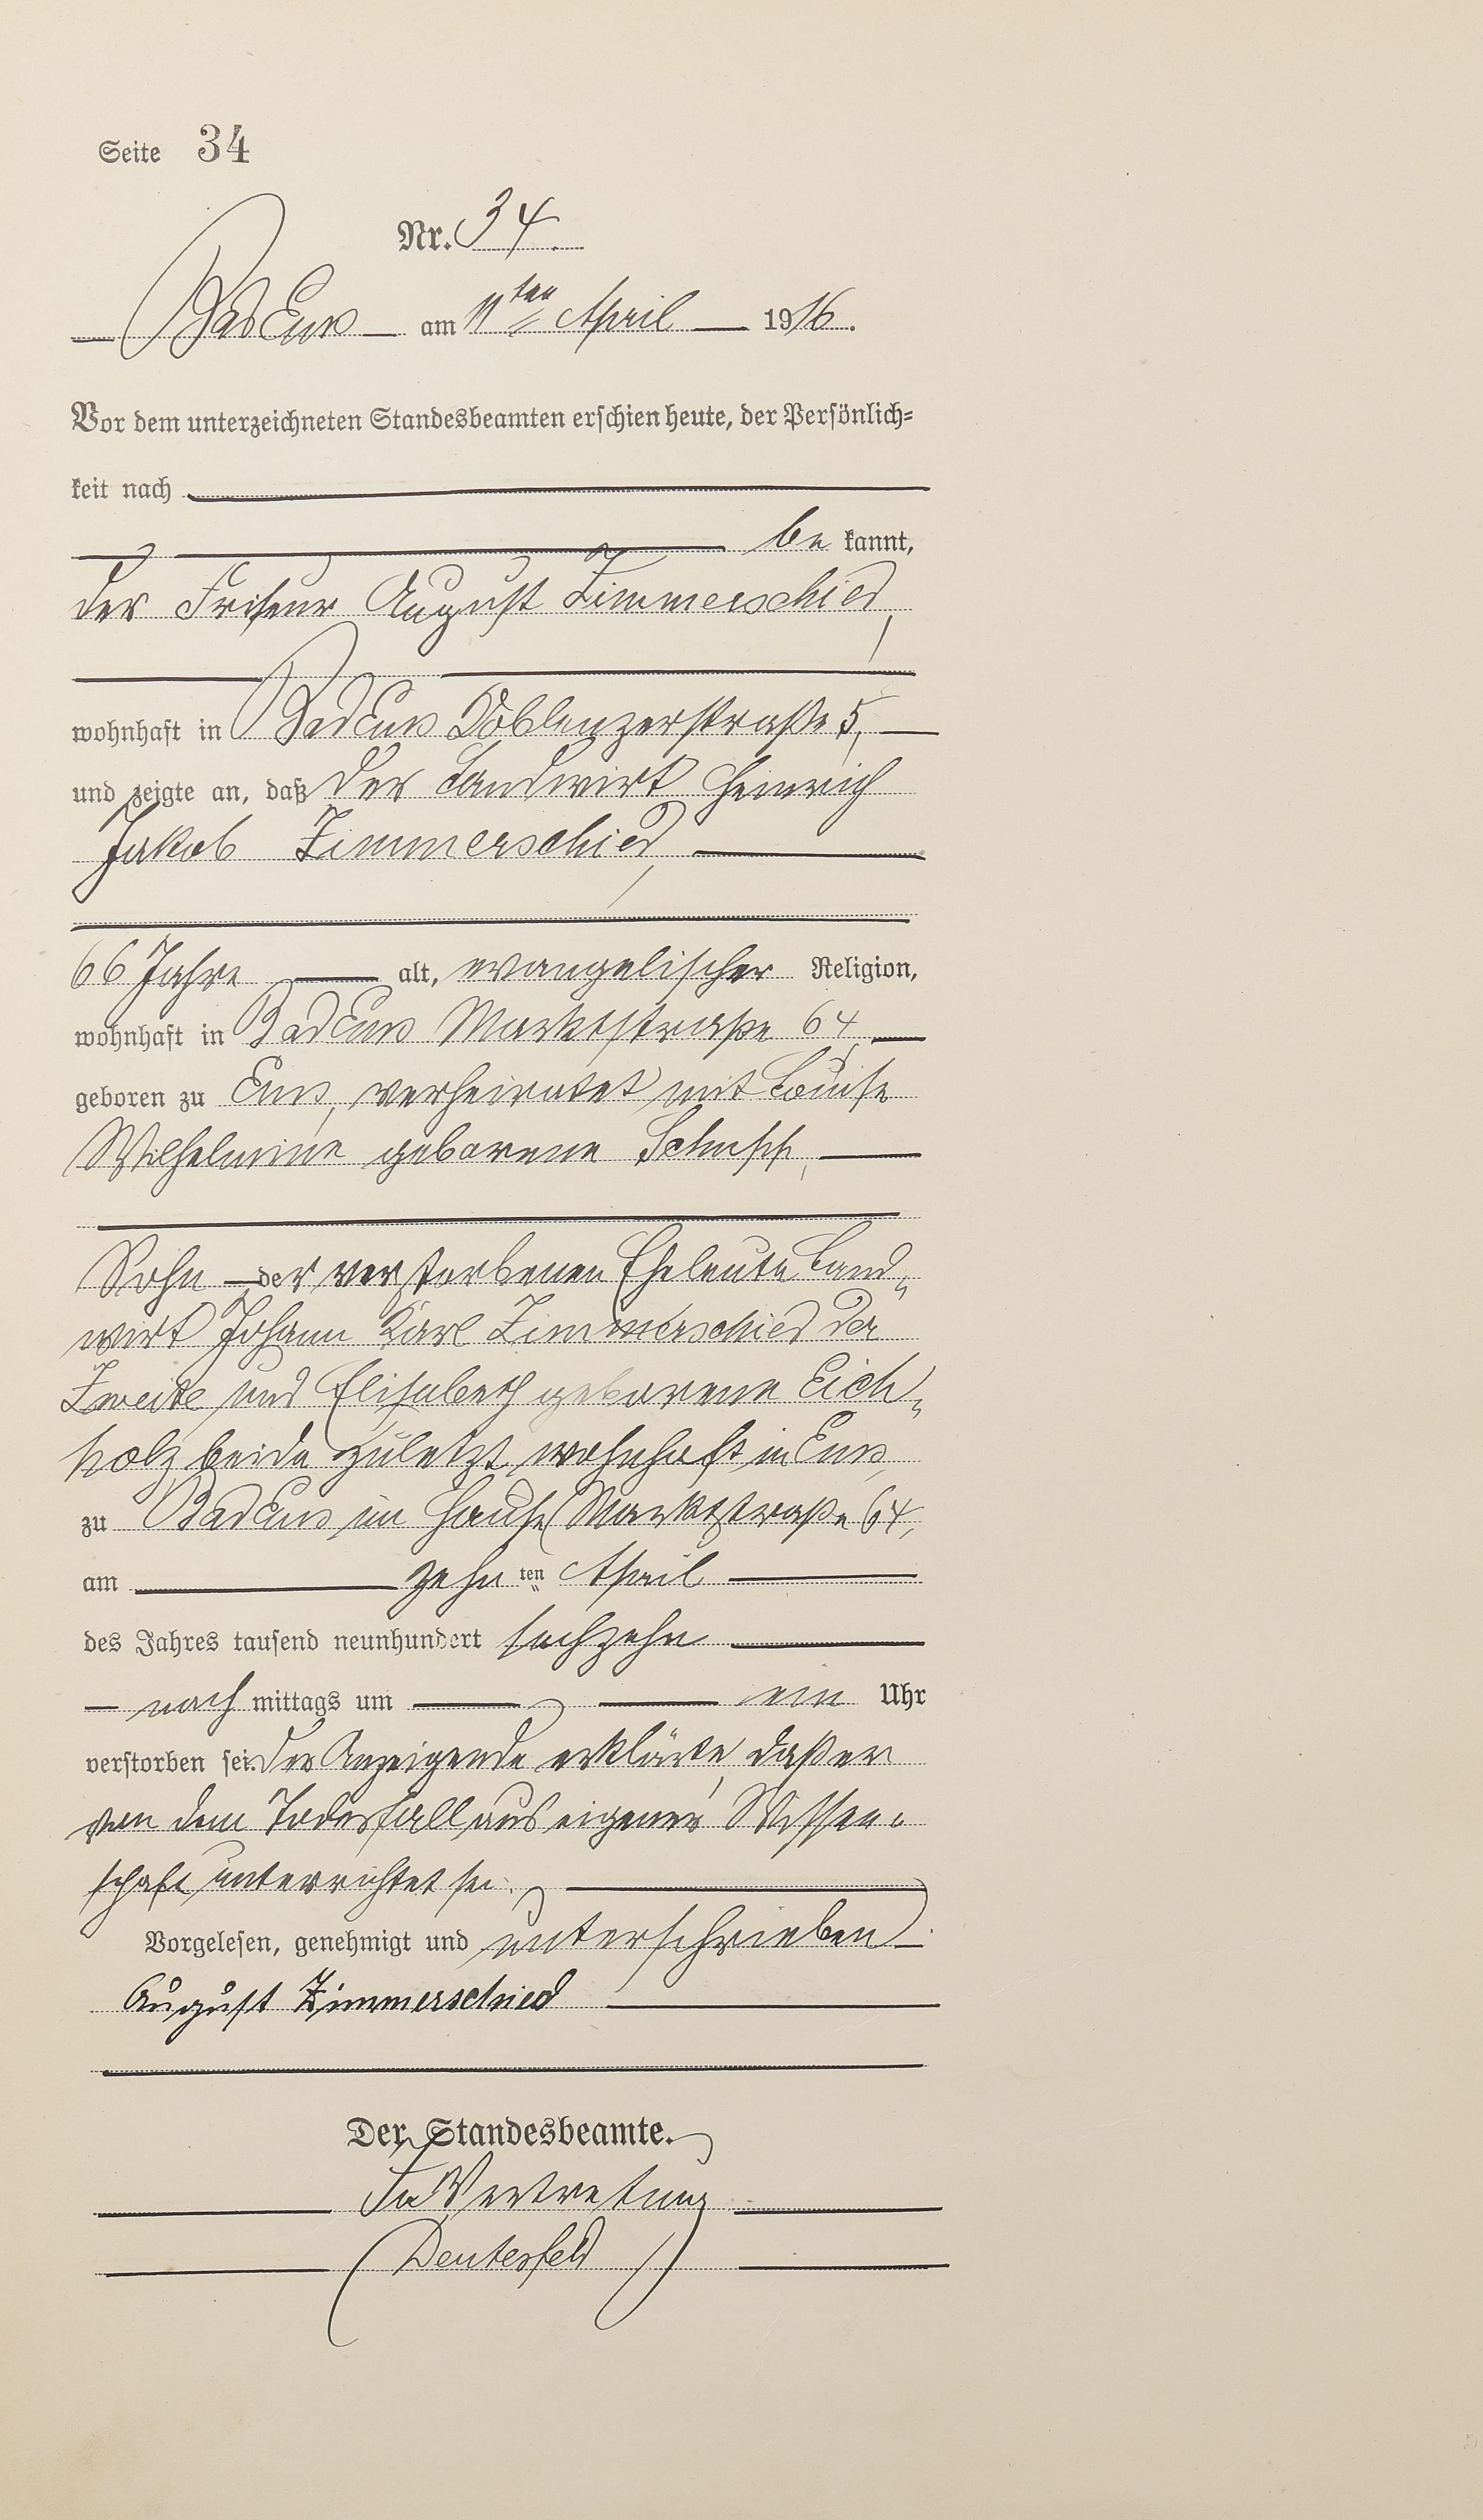 Seite 34
Nr. 34.
Bad Ems am 11ten April 1916.
Vor dem unterzeichneten Standesbeamten erschien heute, der Persönlich-
keit nach
be kannt,
der Friseur August Zimmerschied,
wohnhaft in Bad Ems Koblenzerstraße 5,
und zeigte an, daß der Landwirt Heinrich
Jakob Zimmerschied,
66 Jahre alt, evangelischer Religion,
wohnhaft in Bad Ems Marktstraße 64,
geboren zu Ems, verheiratet mit Louise
Wilhelmine geborene
Sohn der verstorbenen Eheleute Land-
wirt Johann Karl Zimmerschied der
Zweite und Elisabeth geborene Eich-
holz beide zuletzt wohnhaft in Ems,
zu Bad Ems im Hause Marktstraße 64,
am zehn ten April
des Jahres tausend neunhundert sechzehn
nach mittags um ein Uhr
verstorben sei. Der Anzeigende erklärte, daß er
von dem Todesfall aus eigener Wissen-
schaft unterrichtet sei.
Vorgelesen, genehmigt und unterschrieben
August Zimmerschied
Der Standesbeamte.
In Vertretung
Deutesfeld